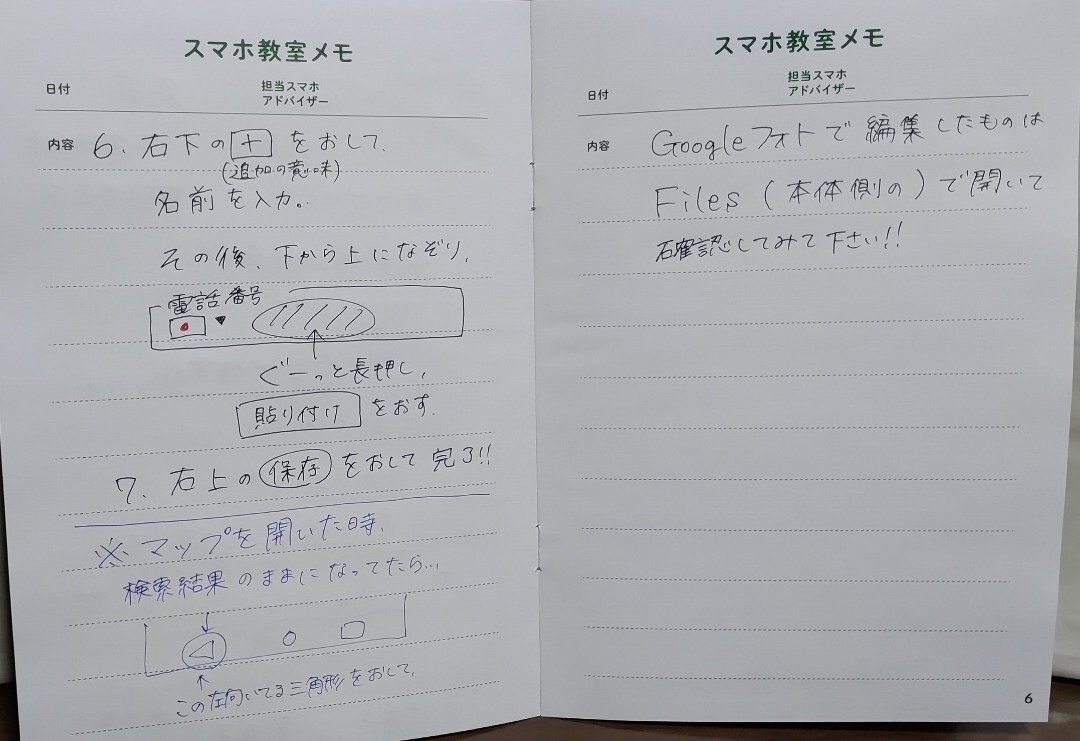 スマホ教室メモ
日付
担当スマホ
アドバイザー
内容
6、右下の+をおして、
(追加の意味)
名前を入力。
その後、下から上になぞり、
電話番号
ぐーっと長押し、
貼り付けをおす。
7、右上の保存をおして完了!!
※マップを開いた時、
検索結果のままになってたら...
この左向いてる三角形をおして、
スマホ教室メモ
日付
担当スマホ
アドバイザー
内容
Googleフォトで編集したものは
Files(本体側の)で開いて
確認してみて下さい!!
6